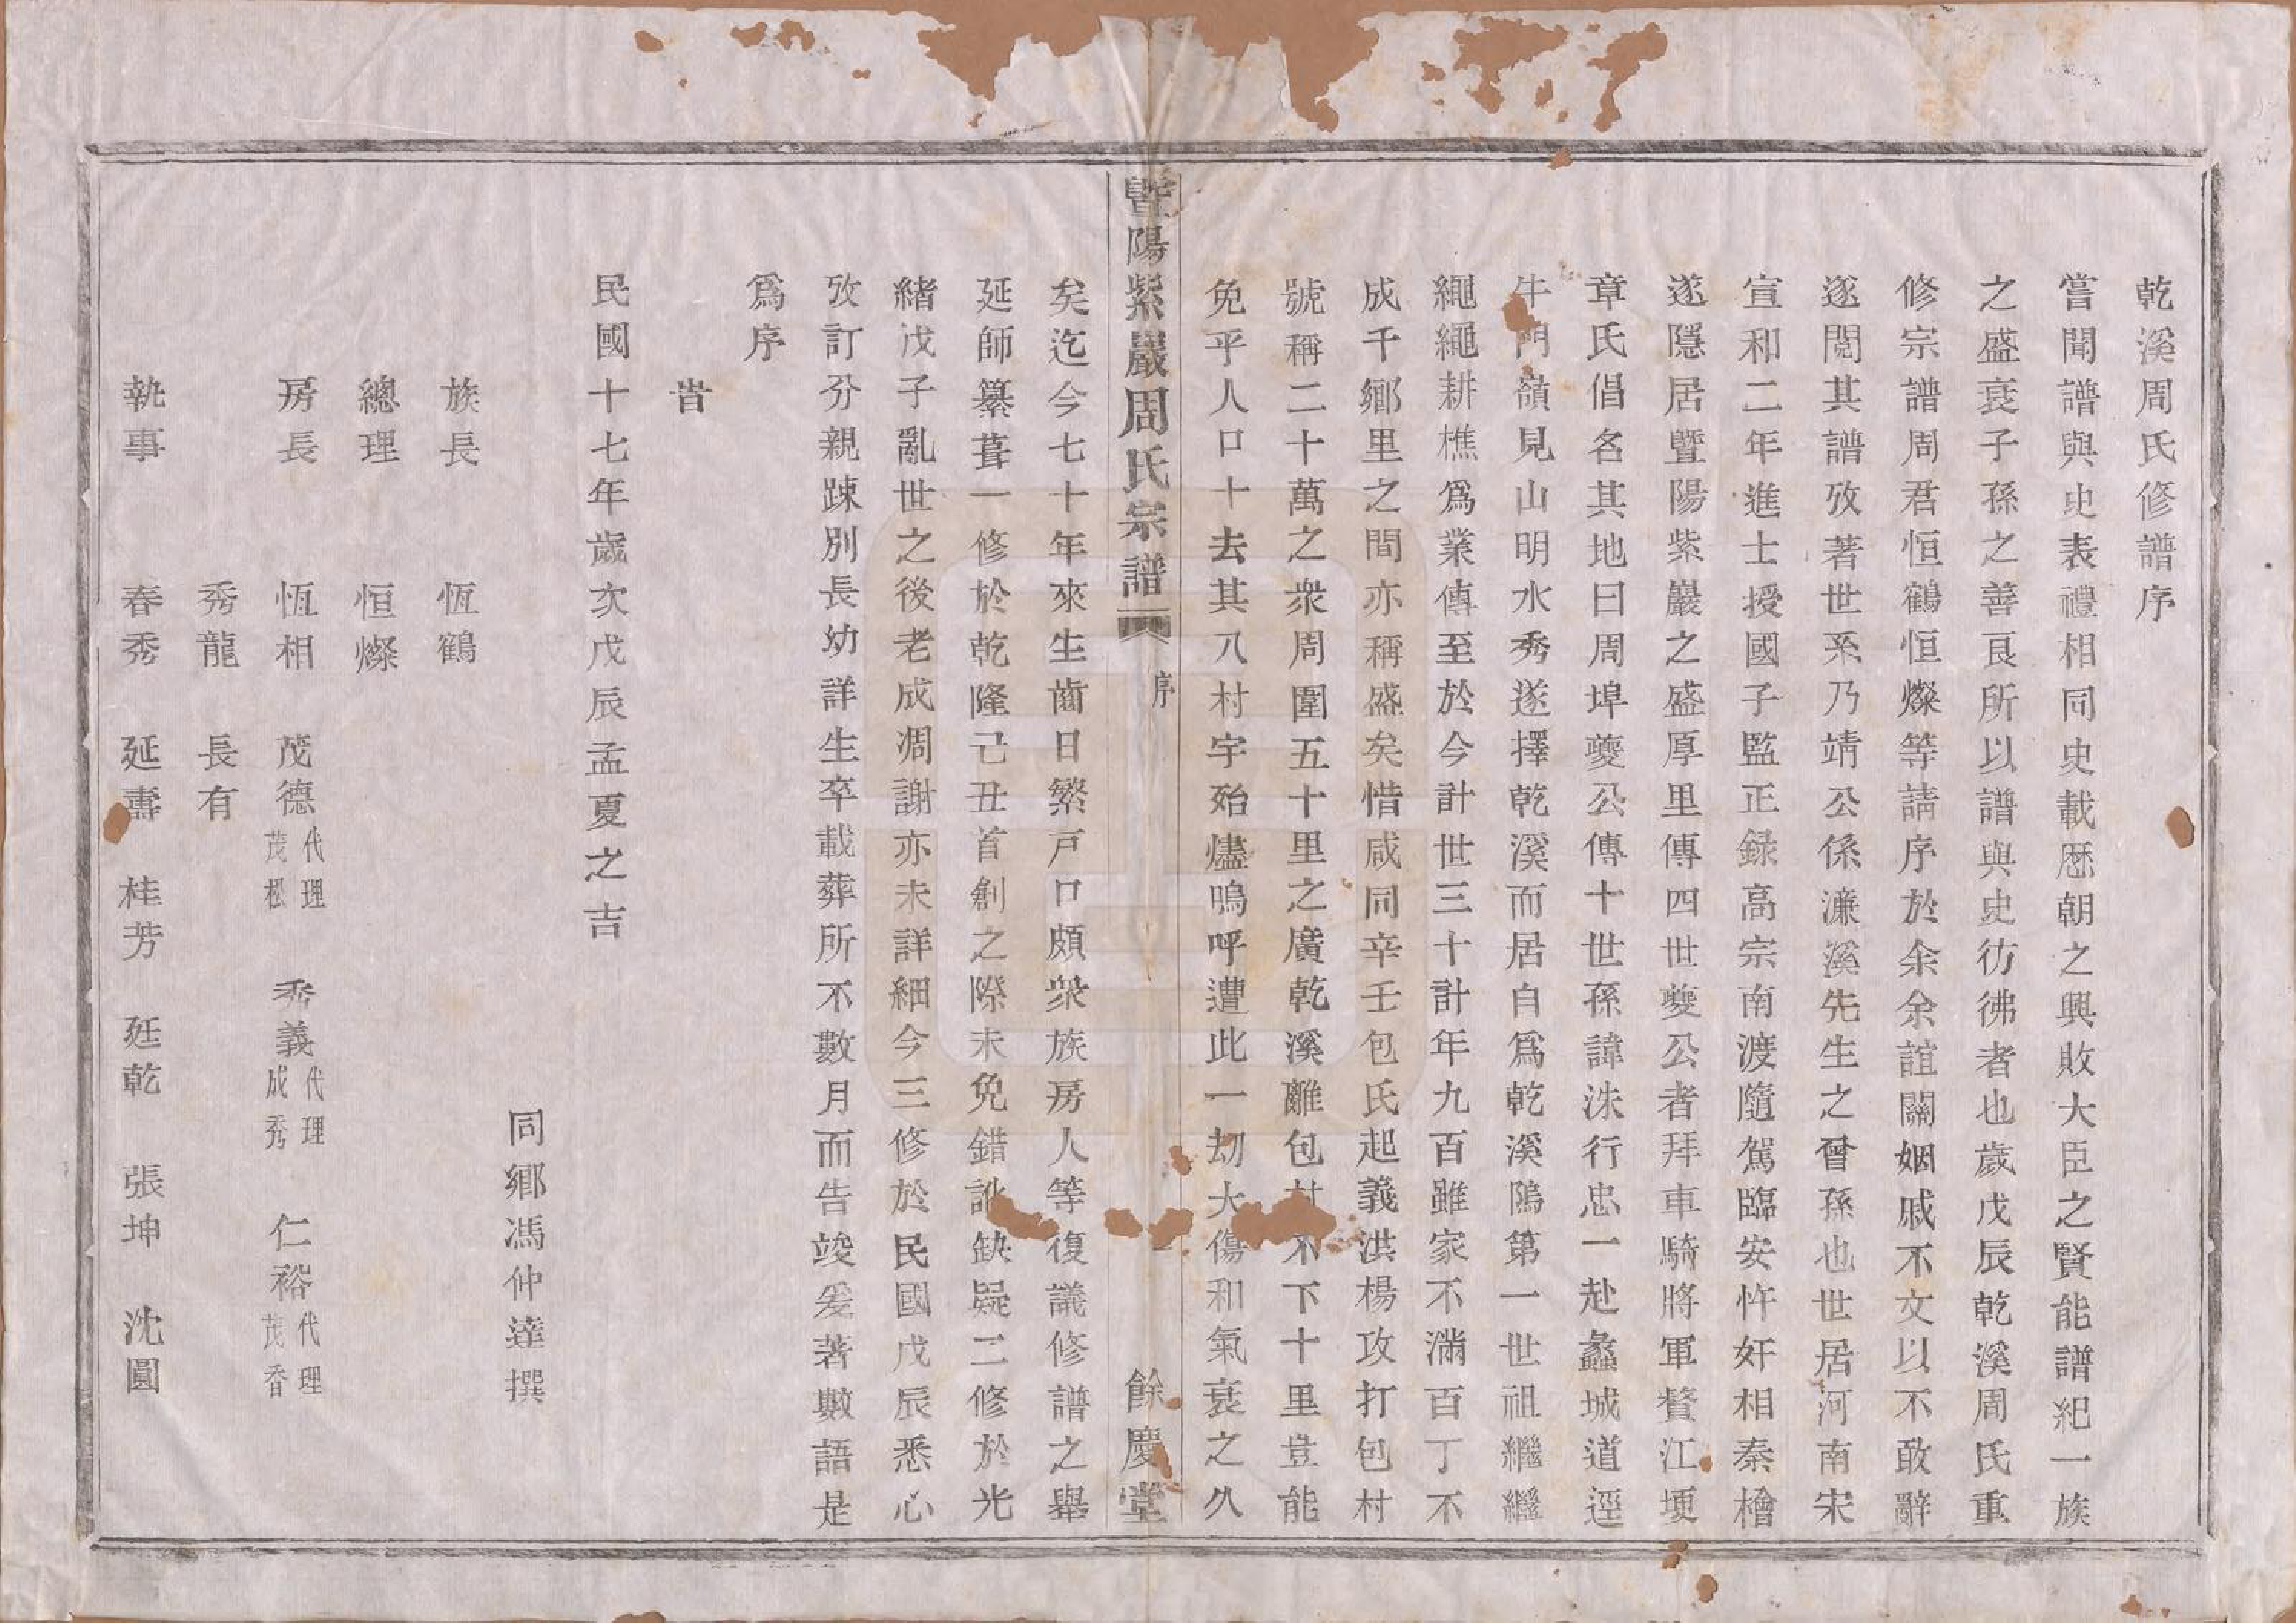 乾溪周氏修譜序
嘗聞譜與史表禮相同史載歷朝之興敗大臣之賢能譜紀一族
之盛衰子孫之善良所以譜與史彷彿者也歲戊辰乾溪周氏重
修宗譜周君恒鶴恒燦等請序於余余誼關姻戚不文以不敢辭
遂閱其譜攷著世系乃靖公係濂溪先生之曾孫也世居河南宋
宣和二年進士授國子監正錄高宗南渡隨駕臨安忤奸相秦檜
遂隱居暨陽紫巖之盛厚里傳四世夔公者拜車騎將軍贅江埂
章氏倡名其地曰周埠夔公傳十世孫諱洙行忠一赴蠡城道逕
牛門嶺見山明水秀遂擇乾溪而居自爲乾溪隝第一世祖繼繼
繩繩耕樵爲業傳至於今計世三十計年九百雖家不滿百丁不
成千鄉里之間亦稱盛矣惜咸同辛壬包氏起義洪楊攻打包村
號稱二十萬之衆周圍五十里之廣乾溪離包村不下十里豈能
免乎人口十去其八村宇殆燼嗚呼遭此一刼大傷和氣衰之久
暨陽紫巖周氏宗譜 序 一 餘慶堂
矣迄今七十年來生齒日繁戸口頗衆族房人等復議修譜之舉
延師纂葺一修於乾隆己丑首創之際未免錯訛缺疑二修於光
緒戊子亂世之後老成凋謝亦未詳細今三修於民國戊辰悉心
攷訂分親踈別長幼詳生卒載葬所不數月而告竣爰著數語是
爲序
旹
民國十七年歲次戊辰孟夏之吉
同鄉馮仲達撰
族長 恆鶴
總理 恒燦
房長 恆相 茂德代理茂松 秀義代理成秀 仁裕代理茂香
秀龍 長有
執事 春秀 延壽 桂芳 廷乾 張坤 沈圓